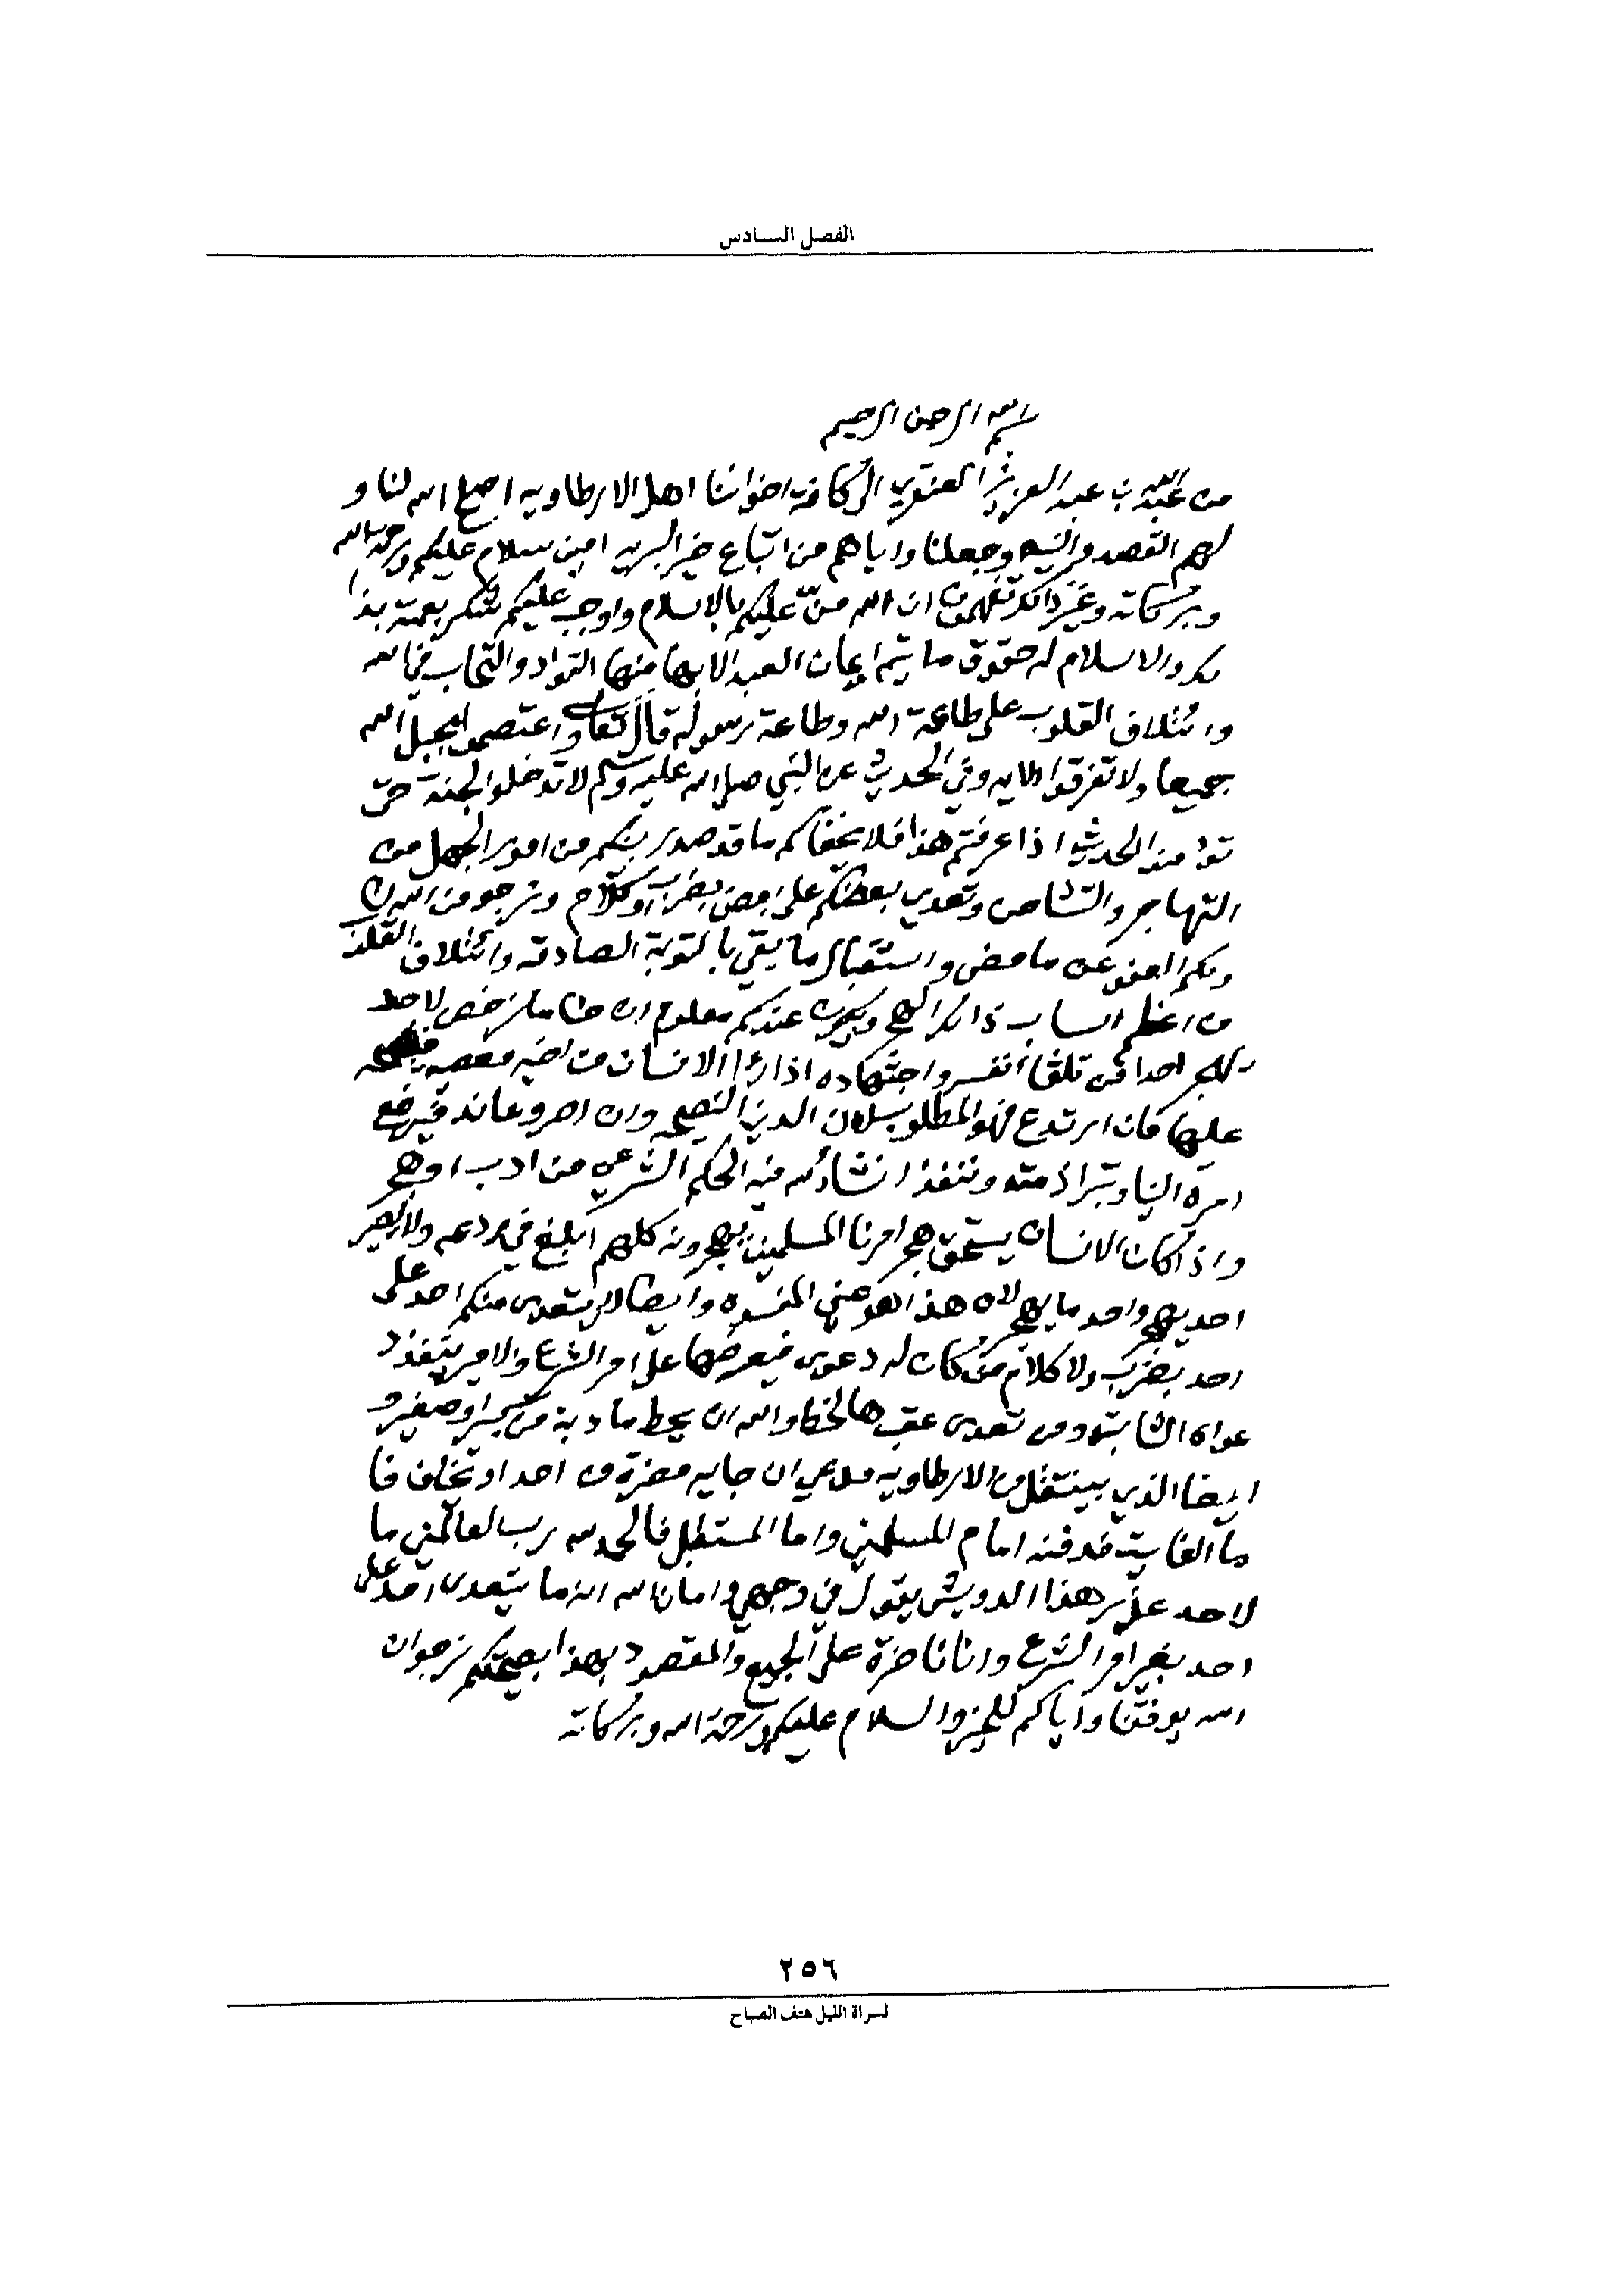 الفصل السادس
بسم الله الرحمن الرحيم
من عبد الله بن عبد العزيز العنقري الى كافة اخواننا اهل الارطاويه اصلح الله لنا و
لهم القصد والنيه وجعلنا واياهم من اتباع خير البريه امين سلام عليكم ورحمة الله
وبركاته وغير ذالك تفهمون ان الله منّ عليكم بالاسلام واوجب عليكم شكر نعمته بذا
لك والاسلام له حقوق ما يتم ايمان العبد الا بها منها التواد والتحاب في الله
وائتلاف القلوب على طاعة الله وطاعة رسوله قال تعالى واعتصموا بحبل الله
جميعا ولا تفرقوا الايه وفي الحديث عن النبي صلى الله عليه وسلم لا تدخلوا الجنة حتى
تؤمنوا الحديث اذا عرفتم هذا فلا يخفاكم ما قد صدر بينكم من امور الجهل من
التهاجر والتشاحن وتعدي بعضكم على بعض بضرب او كلام ونرجو من الله لنا
ولكم العفو عن ما مضى واستقبال ما بقي بالتوبة الصادقه وائتلاف القلوب
من اعظم اسباب ذالك الهجر ويكون عندكم معلوم ان حنا ما نرخص لاحد
يهجر احد من تلقاء نفسه واجتهاده اذا رءا الانسان من اخيه معصيه
عليها فان ارتدع فهو المطلوب لان الدين النصيحه وان اصر وعاند فيرفع
امره الينا وتبرا ذمته وننفذ انشاءلله فيه الحكم الشرعي من ادب او هجر
واذا كان الانسان يستحق هجر امرنا المسلمين يهجرونه كلهم ابلغ في ردعه ولا يصير
احد يهجر واحد ما يهجر لان هذا هو عين المفسده وايضا لا يتعدى منكم احد على
احد بضرب ولا كلام من كان له دعوى فيعرضها على امر الشرع والامير ينفذ د
عواه الثابته ومن تعدى عقب هالخط والله ان يحط ما دبه من كبير او صغير و
ايضا الذي بينتقل من الارطاويه مدعي ان جايه مضرة من احد او تخلف فا
ما الفايت فدفنه امام المسلمين واما المستقبل فالحمد لله رب العالمين ما
لاحد على هذا الدويش يقول في وجهي وامان الله ان ما يتعدى احد على
احد بغير امر الشرع وانا ناضرة على الجميع والمقصود بهذا نصيحتكم نرجوا ان
الله يوفقنا واياكم للخير والسلام عليكم ورحمة الله وبركاته
٢٥٦
لسراة الليل هتف الصباح